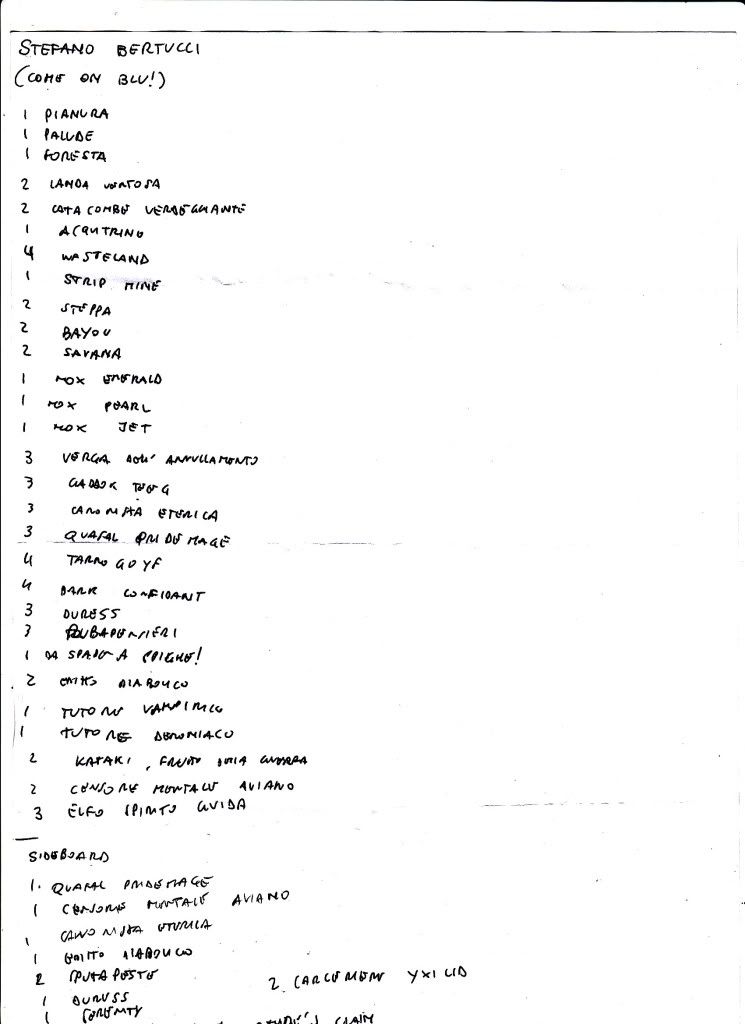 STEFANO BERTUCCI
(COME ON BLU!)
1 PIANURA
1 PALUDE
1 FORESTA
2 LANDA VENTOSA
2 CATACOMBE VERDEGGIANTE
1 ACQUITRINO
4 WASTELAND
1 STRIP MINE
2 STEPPA
2 BAYOU
2 SAVANA
1 MOX EMERALD
1 MOX PEARL
1 MOX JET
3 VERGA DELL' ANNULLAMENTO
3 GADDOK TEEG
3 CANONISTA ETERICA
3 QUAFAL PRIDEMAGE
4 TARMOGOYF
4 DARK CONFIDANT
3 DURESS
3 RUBAPENSIERI
1 DA SPADE A SPIGHE!
2 EDITTO DIABOLICO
1 TUTORE VAMPIRICO
1 TUTORE DEMONIACO
2 KATAKI, FRUTTO DELLA GUERRA
2 CENSORE MENTALE AVIANO
3 ELFO SPIRITO GUIDA
SIDEBOARD
1. QUAFAL PRIDEMAGE
1 CENSORE MENTALE AVIANO
1 CANONISTA ETERICA
1 EDITTO DIABOLICO
2 SPUTAPESTE
2 CARCERIERE YXILID
1 DURESS
1 SERENITY
CLAIM